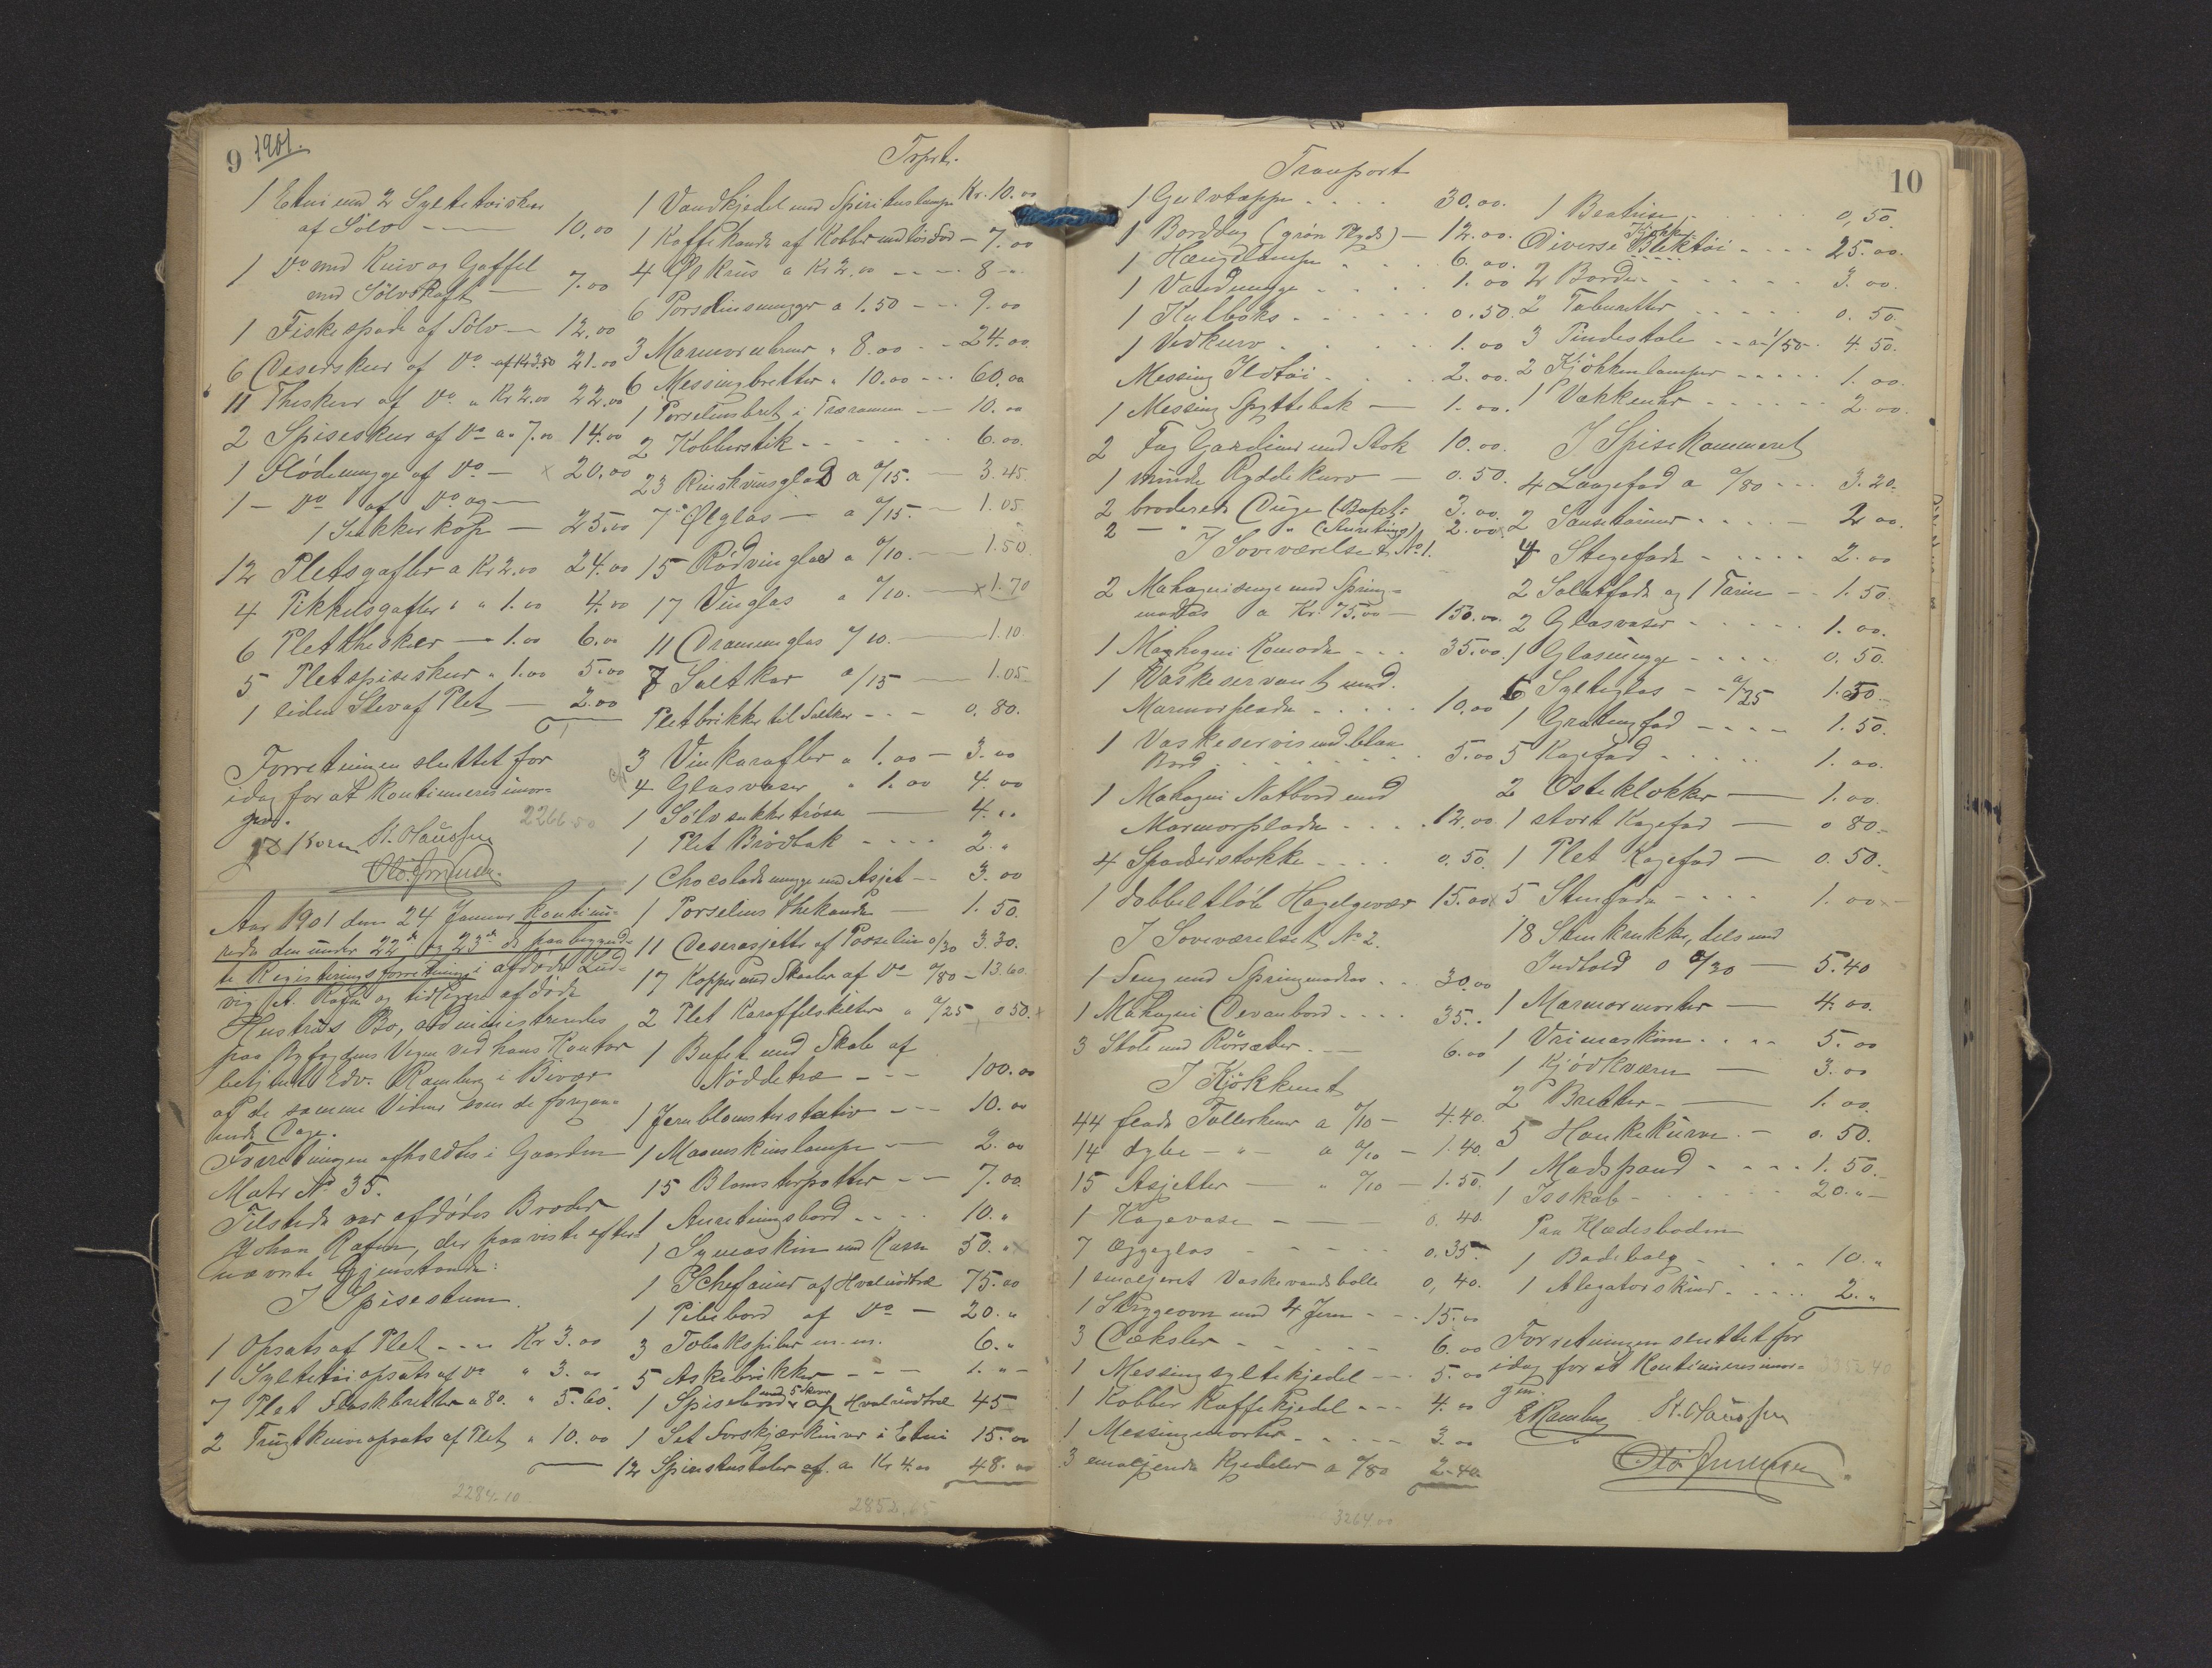 9 1901.
1 Etui med 2 Sylteteiskeer
af Sölv — 10,00
1 Do med Kniv og Gaffel
med Sölvskaft — 7.00
1 Fiskespade af Sölv — 12,00
6 Deserskeer af Do af Kr 3.50 21.00
11 Theskeer af Do a Kr 2.00 22.00
2 Spiseskeer af Do a 7.00 14.00
1 Flödemugge af Do — x 20.00
1 — Do af Do og
1 Sukkerkop — 25.00
12 Pletsgafler a Kr 2.00 24.00
4 Pikkelsgafler a " 1.00 4.00
6 Plettheskeer — 1.00 6.00
5 Pletspiseskeer " 1.00 5.00
1 liden Slev af Plet — 2.00
Forretningen sluttet for
idag for at kontinueres imor-
gen.
2266.50
St. Clausen
Aar 1901 den 24 Januar kontinu-
redes den under 22de og 23de ds paabegynd-
te Registreringsforretning i afdøde Lud-
vig A. Rafn og tidligere afdøde
Hustrus Bo, administreredes
paa Byfogdens Vegne ved hans Kontor
betjent Edv. Ramberg i Bivær
af de samme Vidner som de foregaa-
ende Dage.
Forretningen afholdtes i Gaarden
Matr No 35.
Tilstede var afdødes Broder
Johan Rafn, der paaviste efter-
nævnte Gjenstande:
I Spisestuen.
1 Opsats af Plet - - - Kr 3.00
1 Syltetöi opsats af Do " 3.00
7 Plet Flaskbretter a 80. " 5.60.
2 Frugtkniveopsats af Plet " 10.00
2284.10
Trpt.
1 Vandkjedel med Spirituslampe Kr. 10.00
1 Kaffekande af Kobber med lös Fod — 7.00
4 Ølkrus a Kr 2.00 - - - 8 -
6 Porselinsmugger a 1.50 - - 9.00
3 Marmorurner " 8.00 - - 24.00
6 Messingbretter " 10.00 - - - 60,00
1 Porselinsbret i Træramme - - 10.00
2 Kobberstik - - - - - 6.00.
23 Rinskvinsglas a "/15. — 3.45
7 Ølglas — a "/15. — 1.05
15 Rödvinglas a "/10. — 1.50.
17 Vinglas a "/10. — x 1.70
11 Drammeglas "/10. — 1.10
7 Saltkar a/15 — 1.05
Pletbrikker til Saltkar - - - 0.80.
3 Vinkarafler a 1.00 — 3.00
4 Glasvaser " 1.00 4.00
1 Sölvsukkerdrösse — 4."
1 Plet Brödbak - - - - 2."
1 Chocolademugge med Asjet - - 3.00
1 Porselins thekande — 1.50.
11 Deserasjetter af Porselin a/30 3.30.
17 Kopper med Skaaler af Do "/80 - 13.60.
2 Plet Karaffelskilter a "/25 0 50. x
1 Bufet med Skab af
Nöddetræ - - - 100.00
1 Jernblomsterstativ - - - 10.00
1 Maaneskinslampe — 2.00
15 Blomsterpotter - - 7.00.
1 Anretningsbord - - - 10."
1 Symaskin med Kasse 50." x
1 Schefonier af Hvalnödtræ 75.00
1 Pibebord af Do — 20."
3 Tobakspiber m.m. 6."
5 Askebrikker - - - 1."
1 Spisebord med 5 Skiver af Hvalnödtræ 45 -
1 Set Forskjærkniver i Etui 15.00
12 Spisestuestoler af. a Kr 4.00 48.00
2852.65
Transport
10
1 Gulvtæppe - - - - 30.00.
1 Borddug (grön Plyds) — 12.00.
1 Hængelampe - - - 6.00.
1 Vandmugge - - - - 1.00
1 Kulboks - - - - - - 0.50.
1 Vedkurv - - - - 1.00
Messing Ildtöi - - - - 2.00.
1 Messing Spyttebak — 1.00.
2 Fag Gardiner med Stok 10.00.
1 mindre Ryddekurv — 0.50.
2 broderede Duge (Bufet: 3.00.
2 — " — " (Anretnings) 2.00.
I Soveværelset No 1.
2 Mahognisenge med Spring-
madras a Kr. 75.00 — 150.00.
1 Mahogni Komode - - - 35.00.
1 Vaskeservant med.
Marmorplade - - - - - 10.00
1 Vaskeservis med blaa
Bord - - - - - - - - 5.00
1 Mahogni Natbord med
Marmorplade - - - - 12.00.
4 Spadserstokke - - - - 0.50.
1 dobbeltløb Hagelgevær 15.00 x
I Soveværelset No 2.
1 Seng med Springmadras - - 30.00
1 Mahogni Devanbord - - - - 35..
3 Stole med Rörsæder - — 6.00
I Kjökkenet
44 flade Tallerkener a "/10 — 4.40.
14 dybe - " - a "/10 — 1.40.
15 Asjetter — " "/10 — 1.50.
1 Kagevase - — 0.40.
7 Æggeglas - - - - - 0.35.
1 emaljeret Vaskevandsbolle 0,40.
1 Strygeovn med 4 Jern - - 15.00
3 Dæksler - - - - - - 6.00
1 Messingsyltekjedel - - - 5.00
1 Kobber Kaffekjedel - - - 4.00
1 Messingmorter - - - - - 3.00
3 emaljerede Kjedeler a "/80 2.40.
3264.00
1 Beatrise - - - - - 0,50
Diverse Kjøkken Bliktöi - - - - 25.00.
2 Borde - - - - - - 3.00.
2 Taburetter - - - - - 0.50.
3 Pindestole - - a 1/50 - 4.50.
2 Kjökkenlamper - - - - - 1.00.
1 Vækkeuhr - - - - - - 2.00.
I Spisekammeret
4 Laagefad a "/80 - - - 3.20.
2 Sauseterriner - - - - — 2.00.
4 Stegefade - - - - - 2.00
2 Salatfade og 1 Tarin - - 1.50.
2 Glasvaser - - - - - 1.00.
1 Glasmugge - - - - 0.50.
6 Sylteglas - - a/25 1.50
1 Gratengfad - - - - 1.50.
5 Kagefad - - - - - 1.00.
2 Osteklokker — 1.00
1 stort Kagefad — 0 80.
1 Plet Kagefad — 0.50.
5 Stenfade - - - - 1.00 x
18 Stenkrukker, dels med
Indhold a "/30 — 5.40
1 Marmormorter — 4.00.
1 Vrimaskine - - - - 5.00
1 Kjödkværn — 3.00
2 Bretter - — 1.00
5 Hankekurve - — 0.50.
1 Madspand - - - - 1.50.
1 Isskab - - - - - - 20." —
Paa Klædesboden
1 Badebalg - - - - - 10."
1 Alegatorskind - - - - - 2."
Forretningen sluttet for
idag for at Kontinueres imor-
gen.
3352.40
E Ramberg St. Clausen